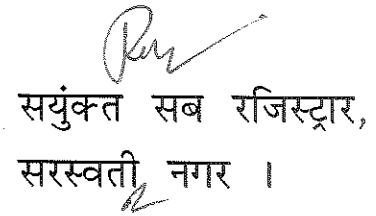 सयुंक्त सब रजिस्ट्रार,
सरस्वती नगर ।